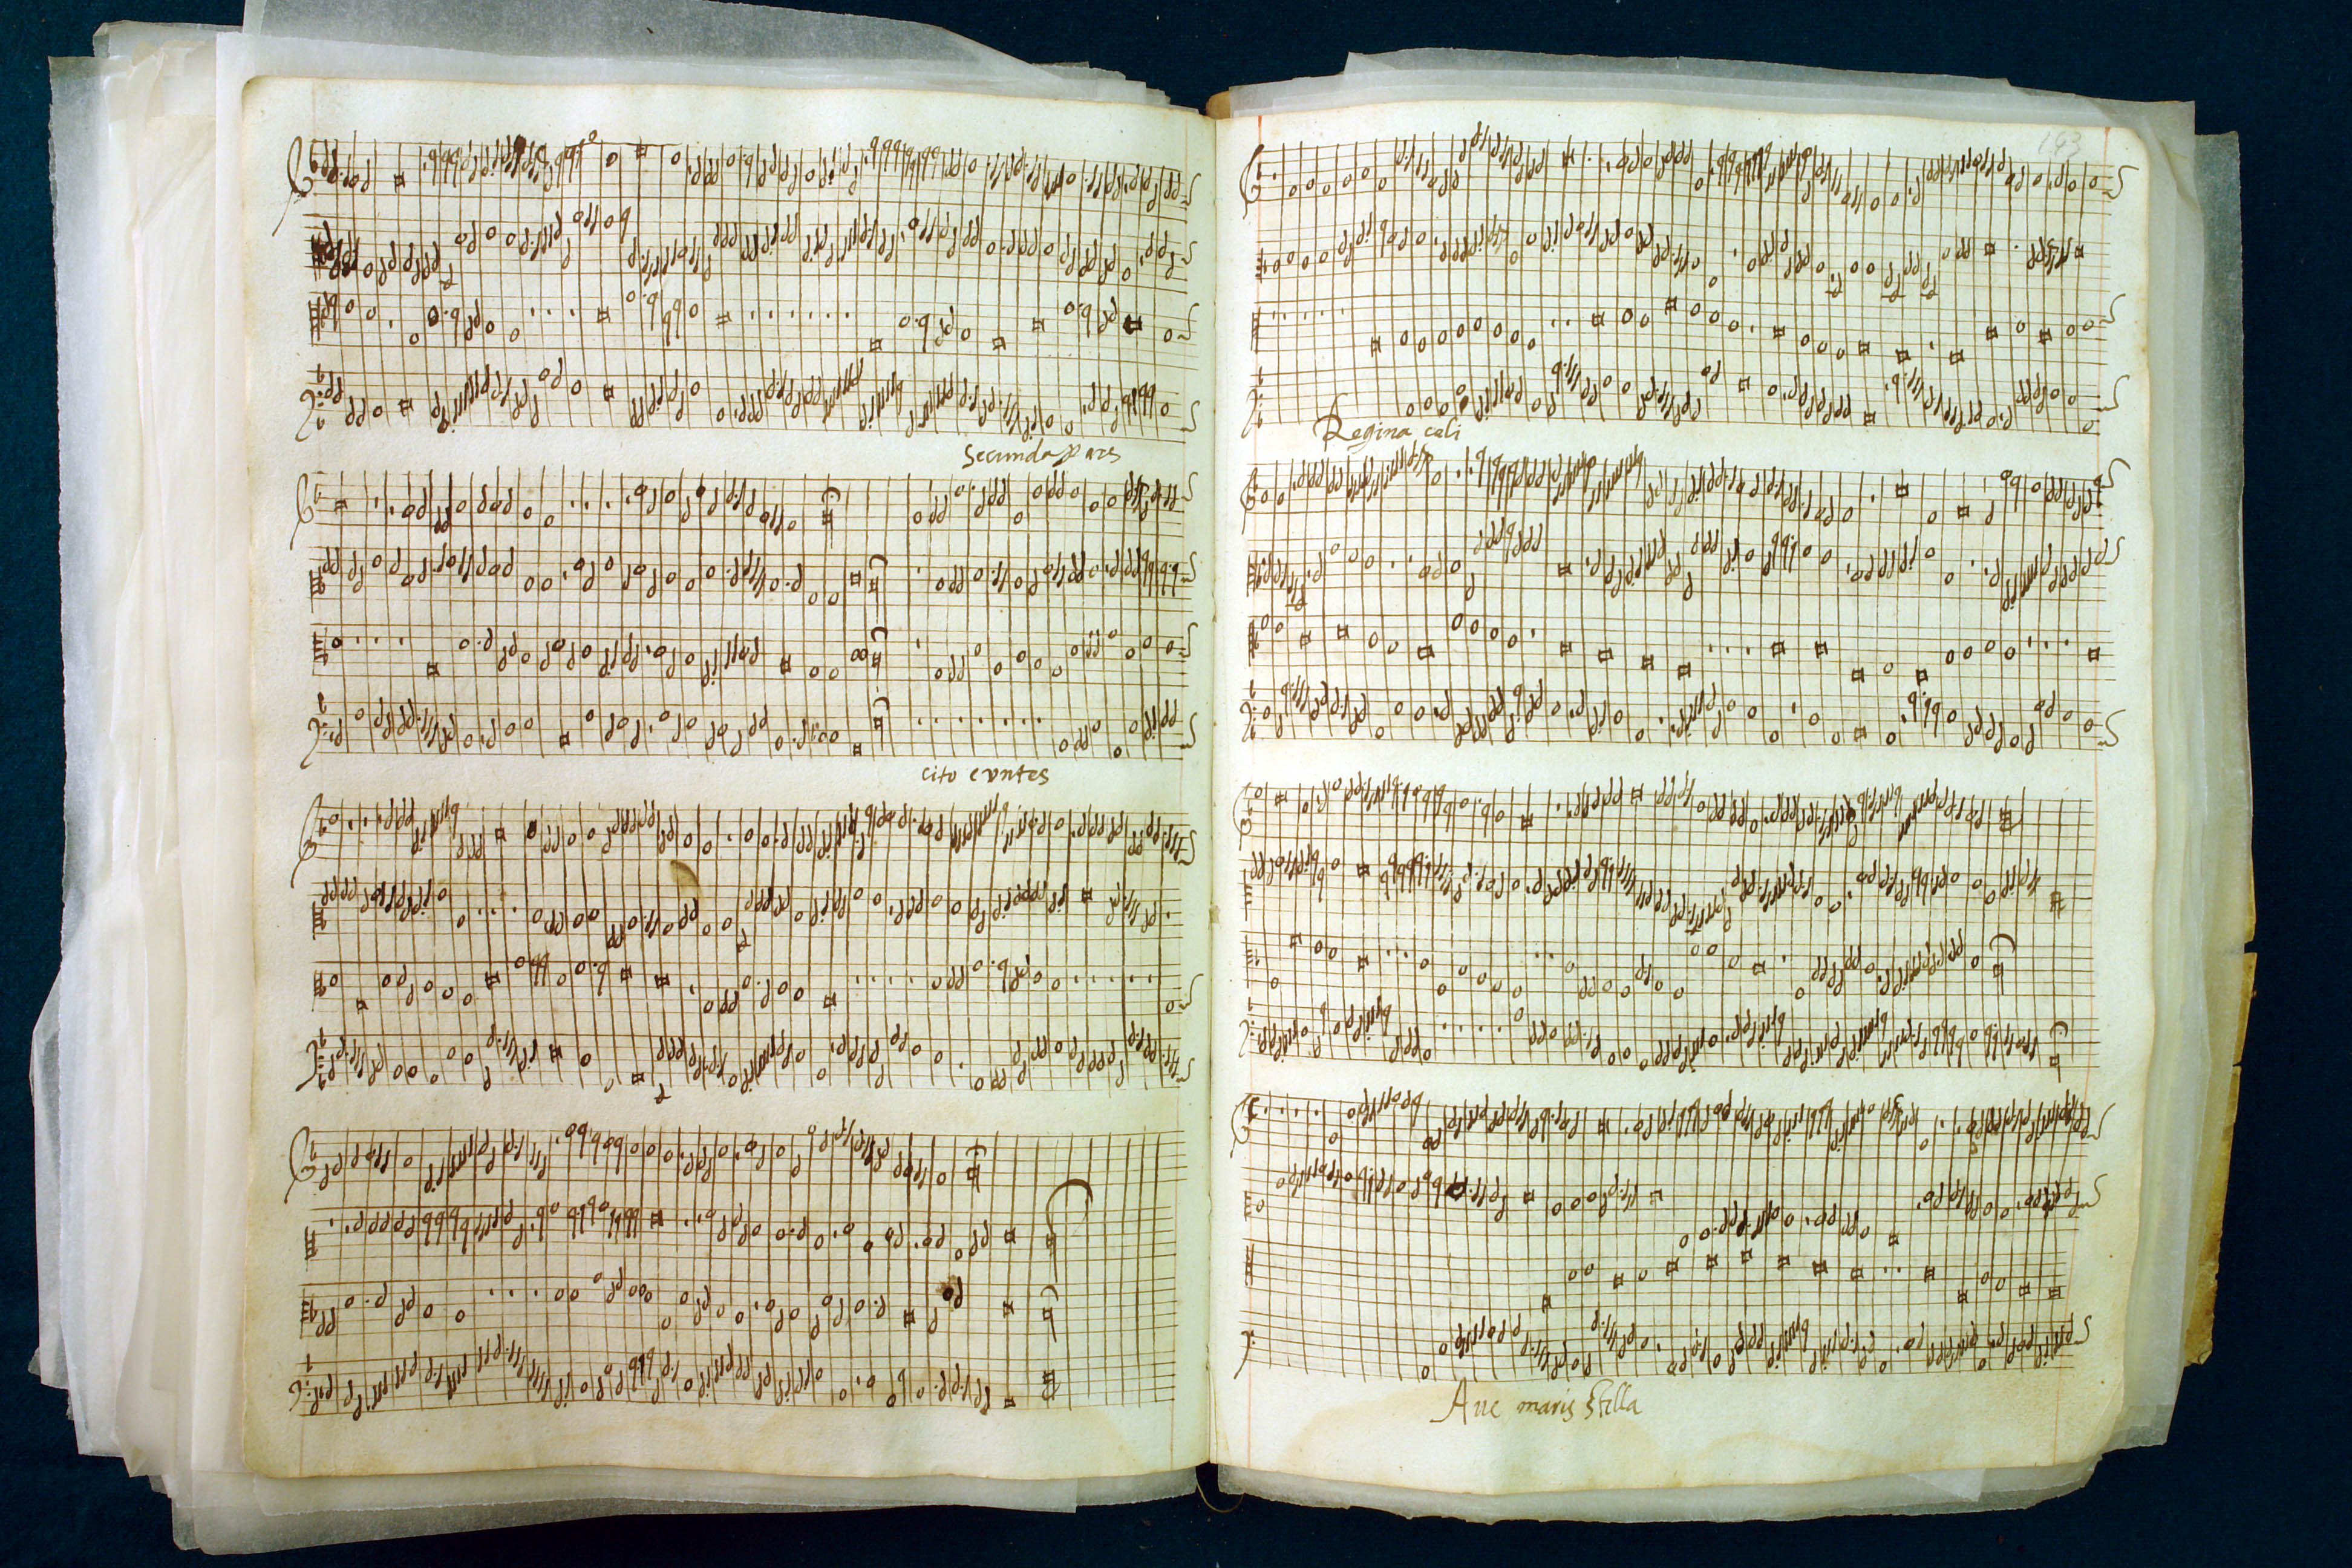 Secunda pars
cito euntes
163
Regina celi
Aue maris stella